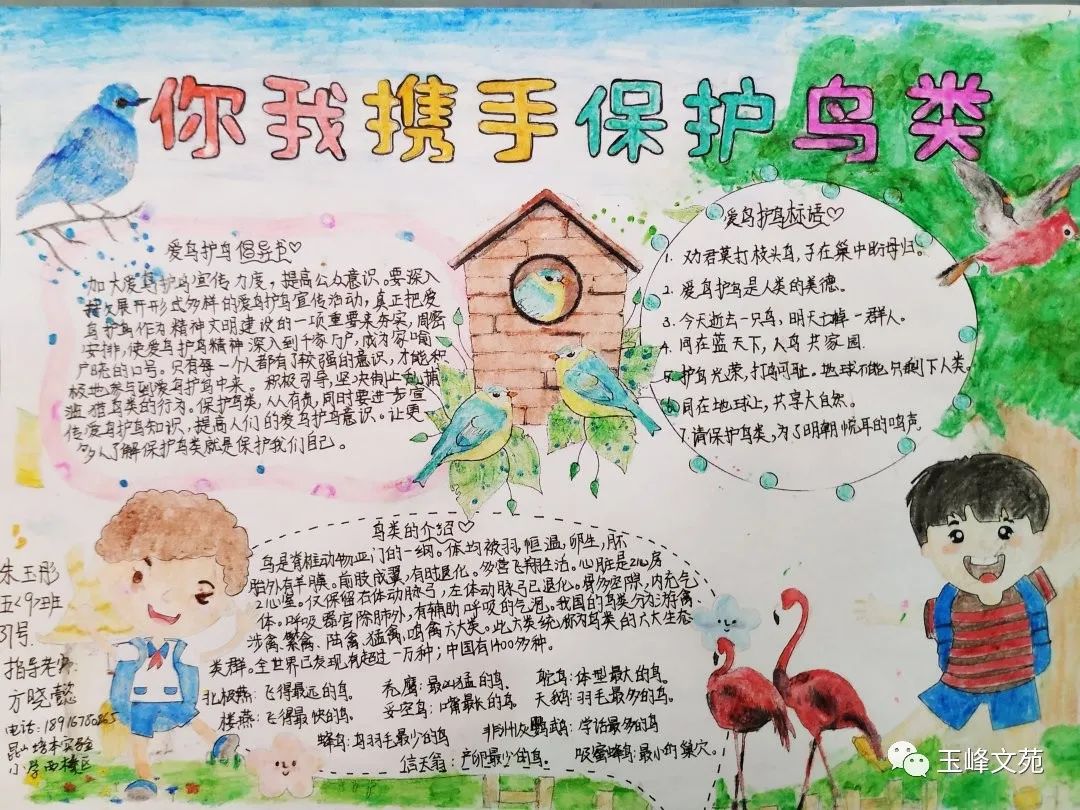 你我携手保护鸟类
爱鸟护鸟倡导书♡
加大爱鸟护鸟宣传力度，提高公众意识。要深入
展开形式多样的爱鸟护鸟宣传活动，真正把爱
鸟护鸟作为精神文明建设的一项重要来夯实，周密
安排，使爱鸟护鸟精神深入到千家万户，成为家喻
户晓的口号。只有每一个人都有了较强的意识，才能积
极地参与到爱鸟护鸟中来。积极引导，坚决制止乱捕
滥猎鸟类的行为。保护鸟类，人人有责，同时要进步宣
传爱鸟护鸟知识，提高人们的爱鸟护鸟意识。让更
多人了解保护鸟类就是保护我们自己。
爱鸟护鸟标语♡
1. 劝君莫打枝头鸟，子在巢中盼母归。
2. 爱鸟护鸟是人类的美德。
3. 今天逝去一只鸟，明天一群人。
4. 同在蓝天下，人鸟共家园.
5. 护鸟光荣，打鸟可耻。地球不能只剩下人类。
6. 同在地球上，共享大自然。
7. 请保护鸟类。为了明朝悦耳的鸣声
鸟类的介绍♡
鸟是脊椎动物亚门的一纲。体均被羽，恒温，卵生，胚
胎外有羊膜。前肢成翼，有时退化。多营飞翔生活。心脏是2心房
2心室。仅保留右体动脉弓，左体动脉弓已退化。骨多空隙，内充气
体。呼吸器官除肺外，有辅助呼吸的气泡。我国的鸟类分为游禽、
涉禽、繁禽、陆禽、猛禽、鸣禽六大类。此大类统称为鸟类的六大生态
类群。全世界已发现有超过一万种；中国有1400多种。
北极燕：飞得最远的鸟。 秃鹰：最凶猛的鸟。 鸵鸟：体型最大的鸟。
楼燕：飞得最快的鸟。 安空鸟：嘴最长的鸟。 天鹅：羽毛最多的鸟。
蜂鸟：鸟羽毛最少的鸟 非洲灰鹦鹉：学话最多的鸟
信天翁：产卵最少的鸟。 吸蜜蜂鸟：最小的巢穴。
朱玉彤
五<9>班
31号
指导老师：
方晓懿
电话：
昆山培本实验
小学西校区
玉峰文苑